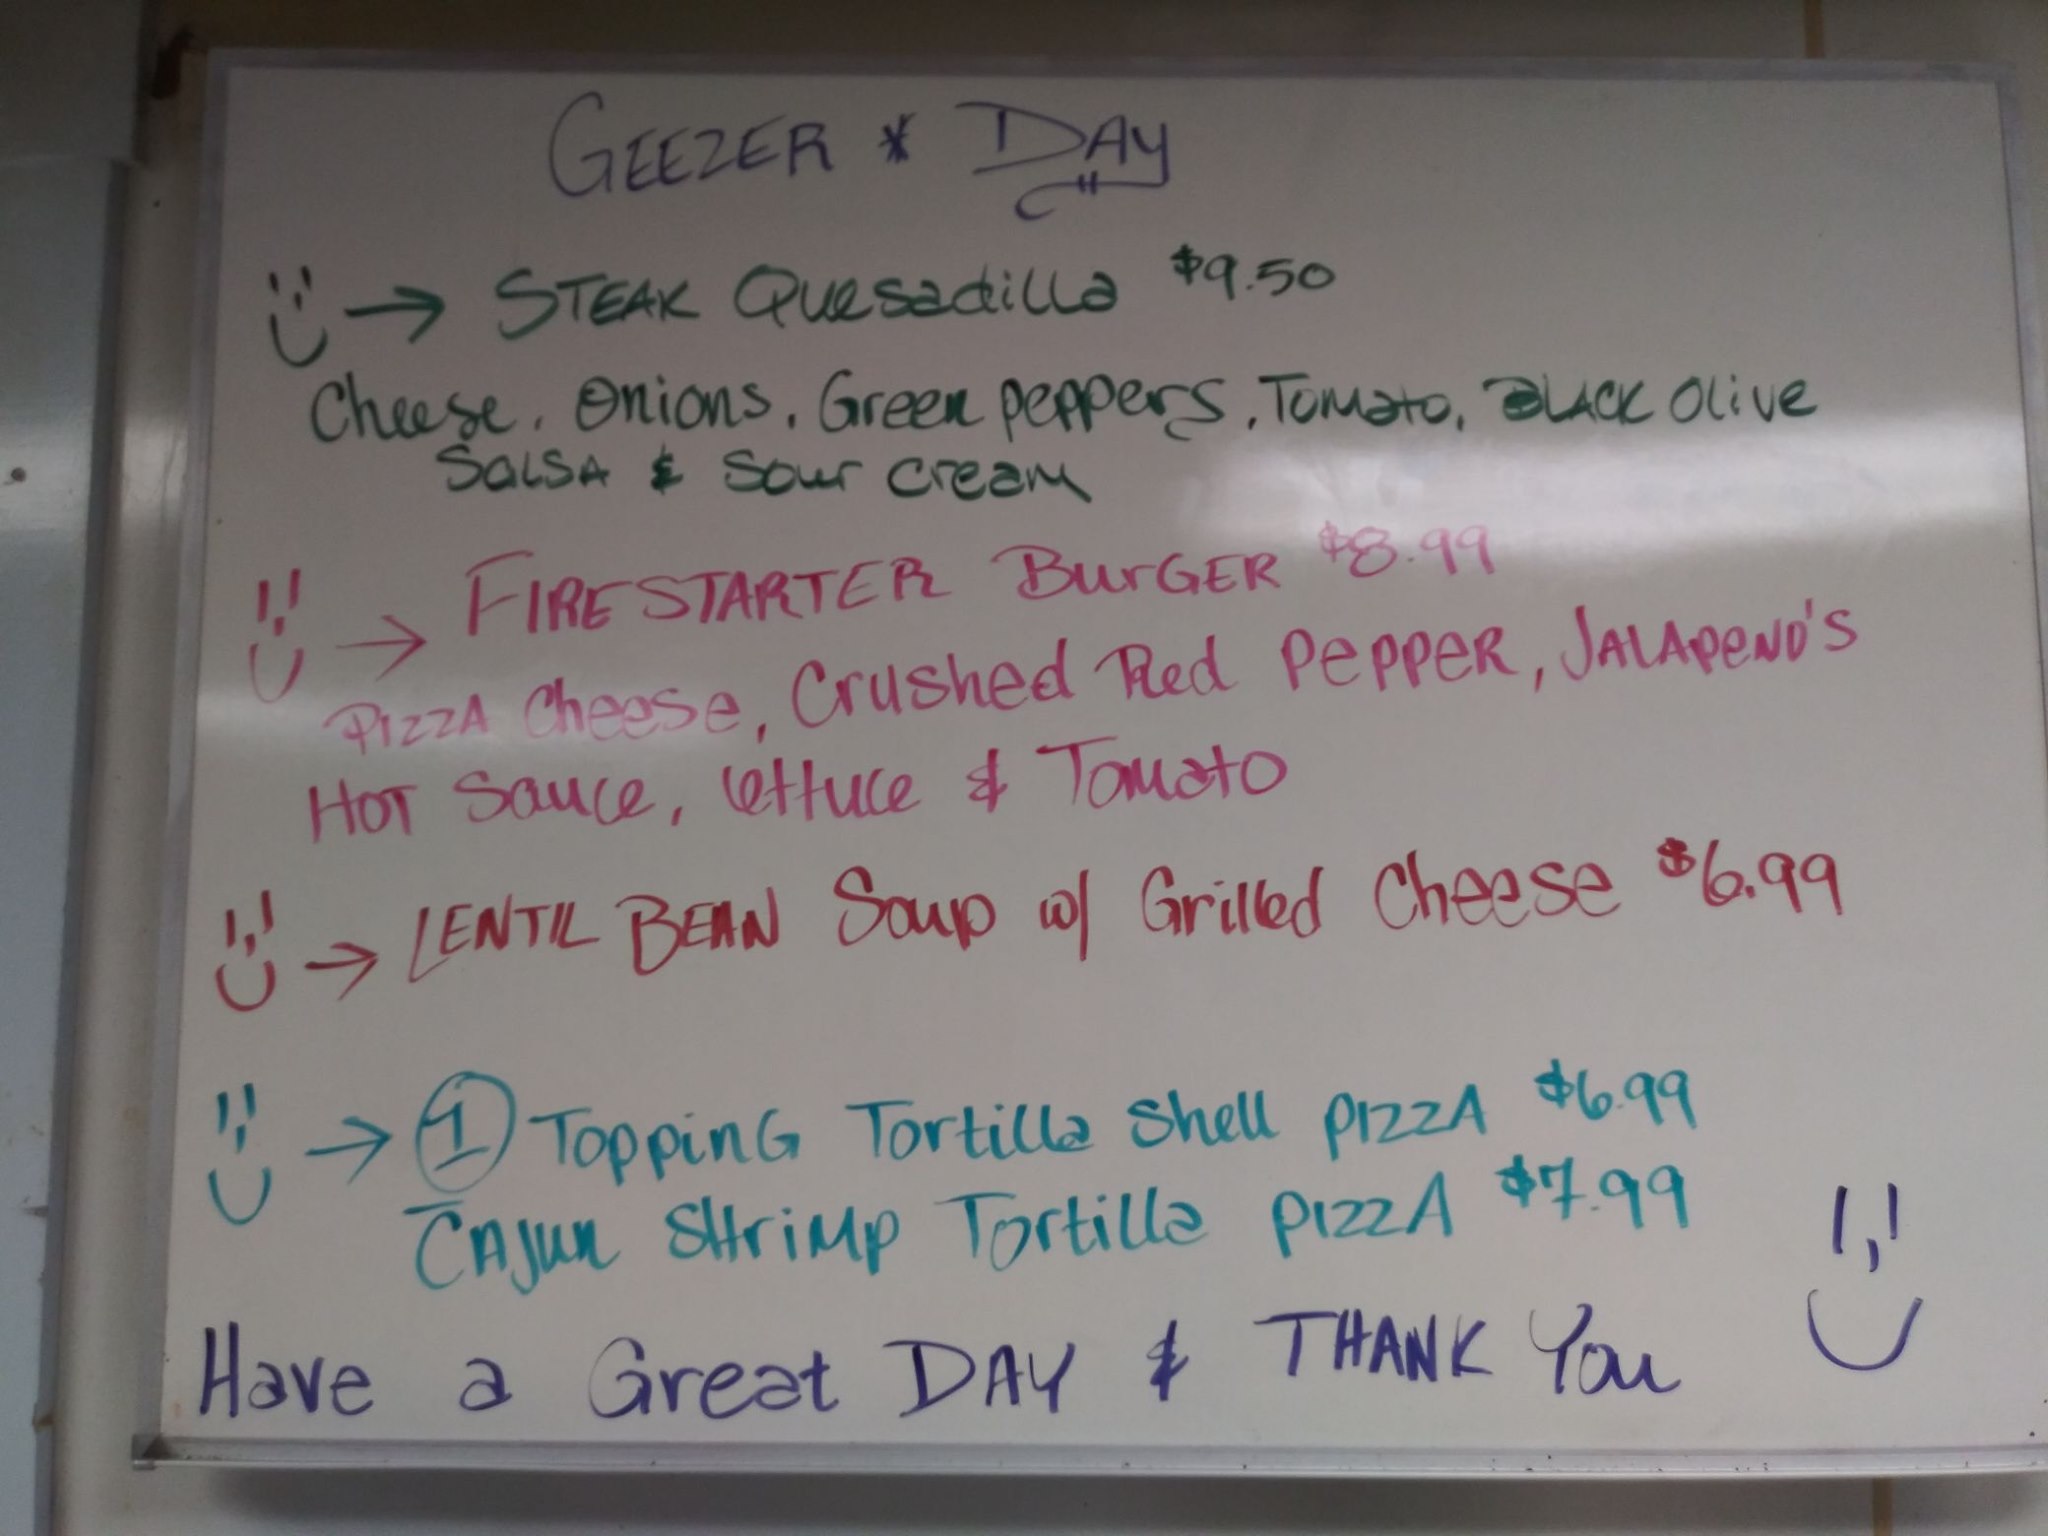 GEEZER * DAY
→ STEAK Quesadilla $9.50
Cheese, Onions, Green peppers, Tomato, BLACK Olive
SalSA & Sour Cream
→ FIRESTARTER BurGER $8.99
PIZZA Cheese, Crushed Red PePPER, JALAPeNO'S
HOT Sauce, Lettuce & Tomato
→ LENTIL BEAN Soup w/ Grilled Cheese $6.99
→ 1 TOppinG Tortilla Shell PIZZA $6.99
CAJUN SHriMp Tortilla PIZZA $7.99
Have a Great DAY & THANK You